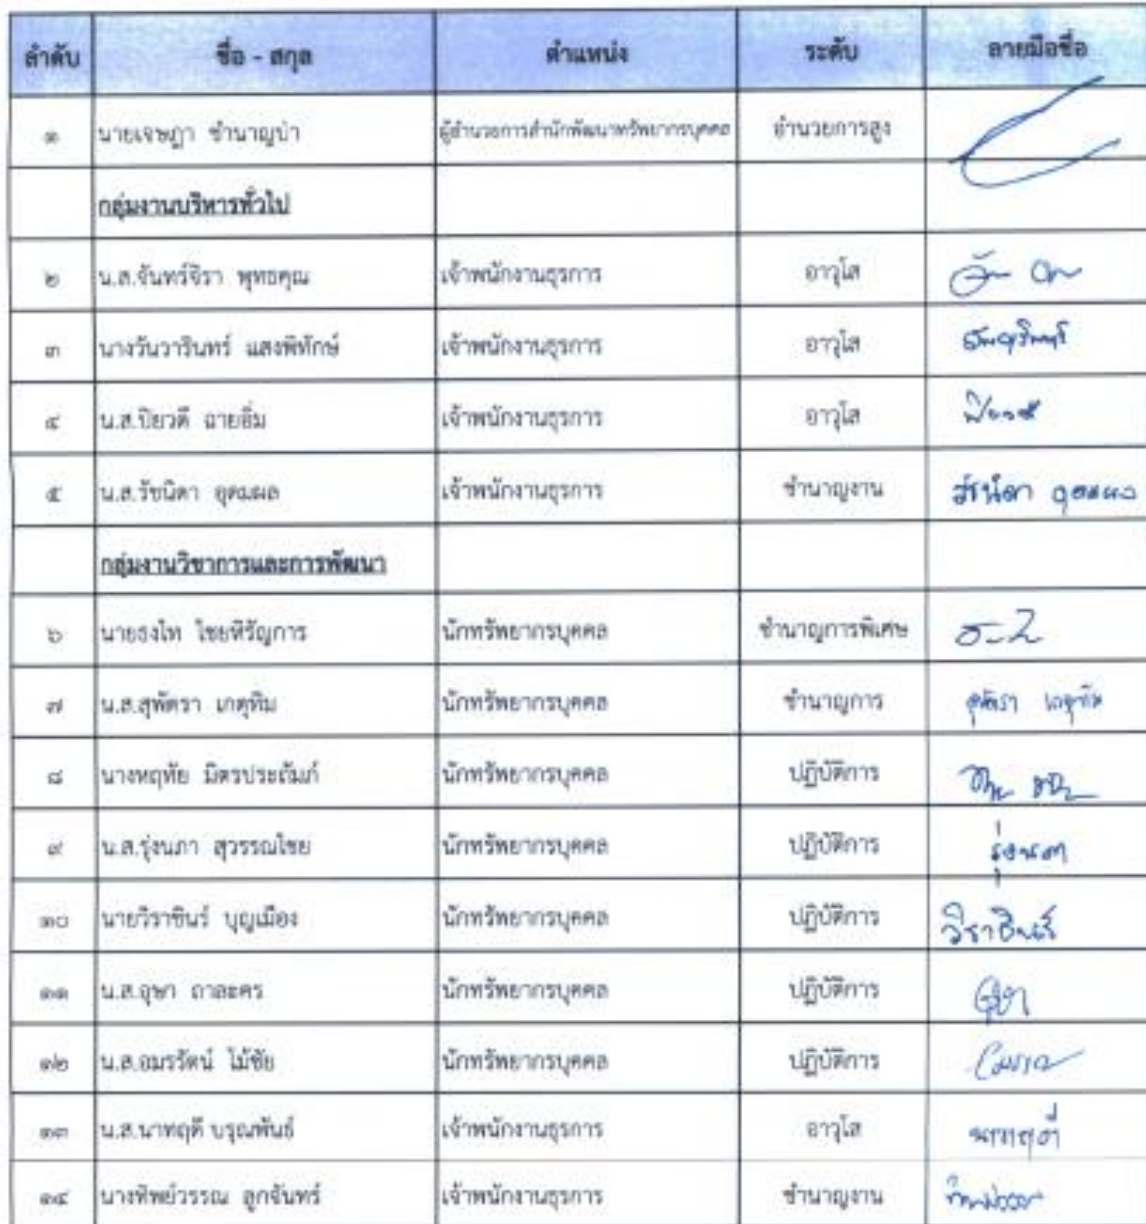 ลำดับ ชื่อ - สกุล ตำแหน่ง ระดับ ลายมือชื่อ
๑ นายเจษฎา ชำนาญป่า ผู้อำนวยการสำนักพัฒนาทรัพยากรบุคคล อำนวยการสูง
กลุ่มงานบริหารทั่วไป
๒ น.ส.จันทร์จิรา พุทธคุณ เจ้าพนักงานธุรการ อาวุโส
๓ นางวันวารินทร์ แสงพิทักษ์ เจ้าพนักงานธุรการ อาวุโส
๔ น.ส.ปิยวดี ฉายอิ่ม เจ้าพนักงานธุรการ อาวุโส
๕ น.ส.รัชนิดา อุดมผล เจ้าพนักงานธุรการ ชำนาญงาน รัชนิดา อุดมผล
กลุ่มงานวิชาการและการพัฒนา
๖ นายธงไท ไชยหิรัญการ นักทรัพยากรบุคคล ชำนาญการพิเศษ
๗ น.ส.สุพัตรา เกตุทิม นักทรัพยากรบุคคล ชำนาญการ สุพัตรา เกตุทิม
๘ นางหฤทัย มิตรประถัมภ์ นักทรัพยากรบุคคล ปฏิบัติการ
๙ น.ส.รุ่งนภา สุวรรณไชย นักทรัพยากรบุคคล ปฏิบัติการ รุ่งนภา
๑๐ นายวิราชินร์ บุญเมือง นักทรัพยากรบุคคล ปฏิบัติการ วิราชินร์
๑๑ น.ส.อุษา ถาละคร นักทรัพยากรบุคคล ปฏิบัติการ อุษา
๑๒ น.ส.อมรรัตน์ ไม้ชัย นักทรัพยากรบุคคล ปฏิบัติการ
๑๓ น.ส.นาทฤดี บรุณพันธ์ เจ้าพนักงานธุรการ อาวุโส นาทฤดี
๑๔ นางทิพย์วรรณ ลูกจันทร์ เจ้าพนักงานธุรการ ชำนาญงาน ทิพย์วรรณ